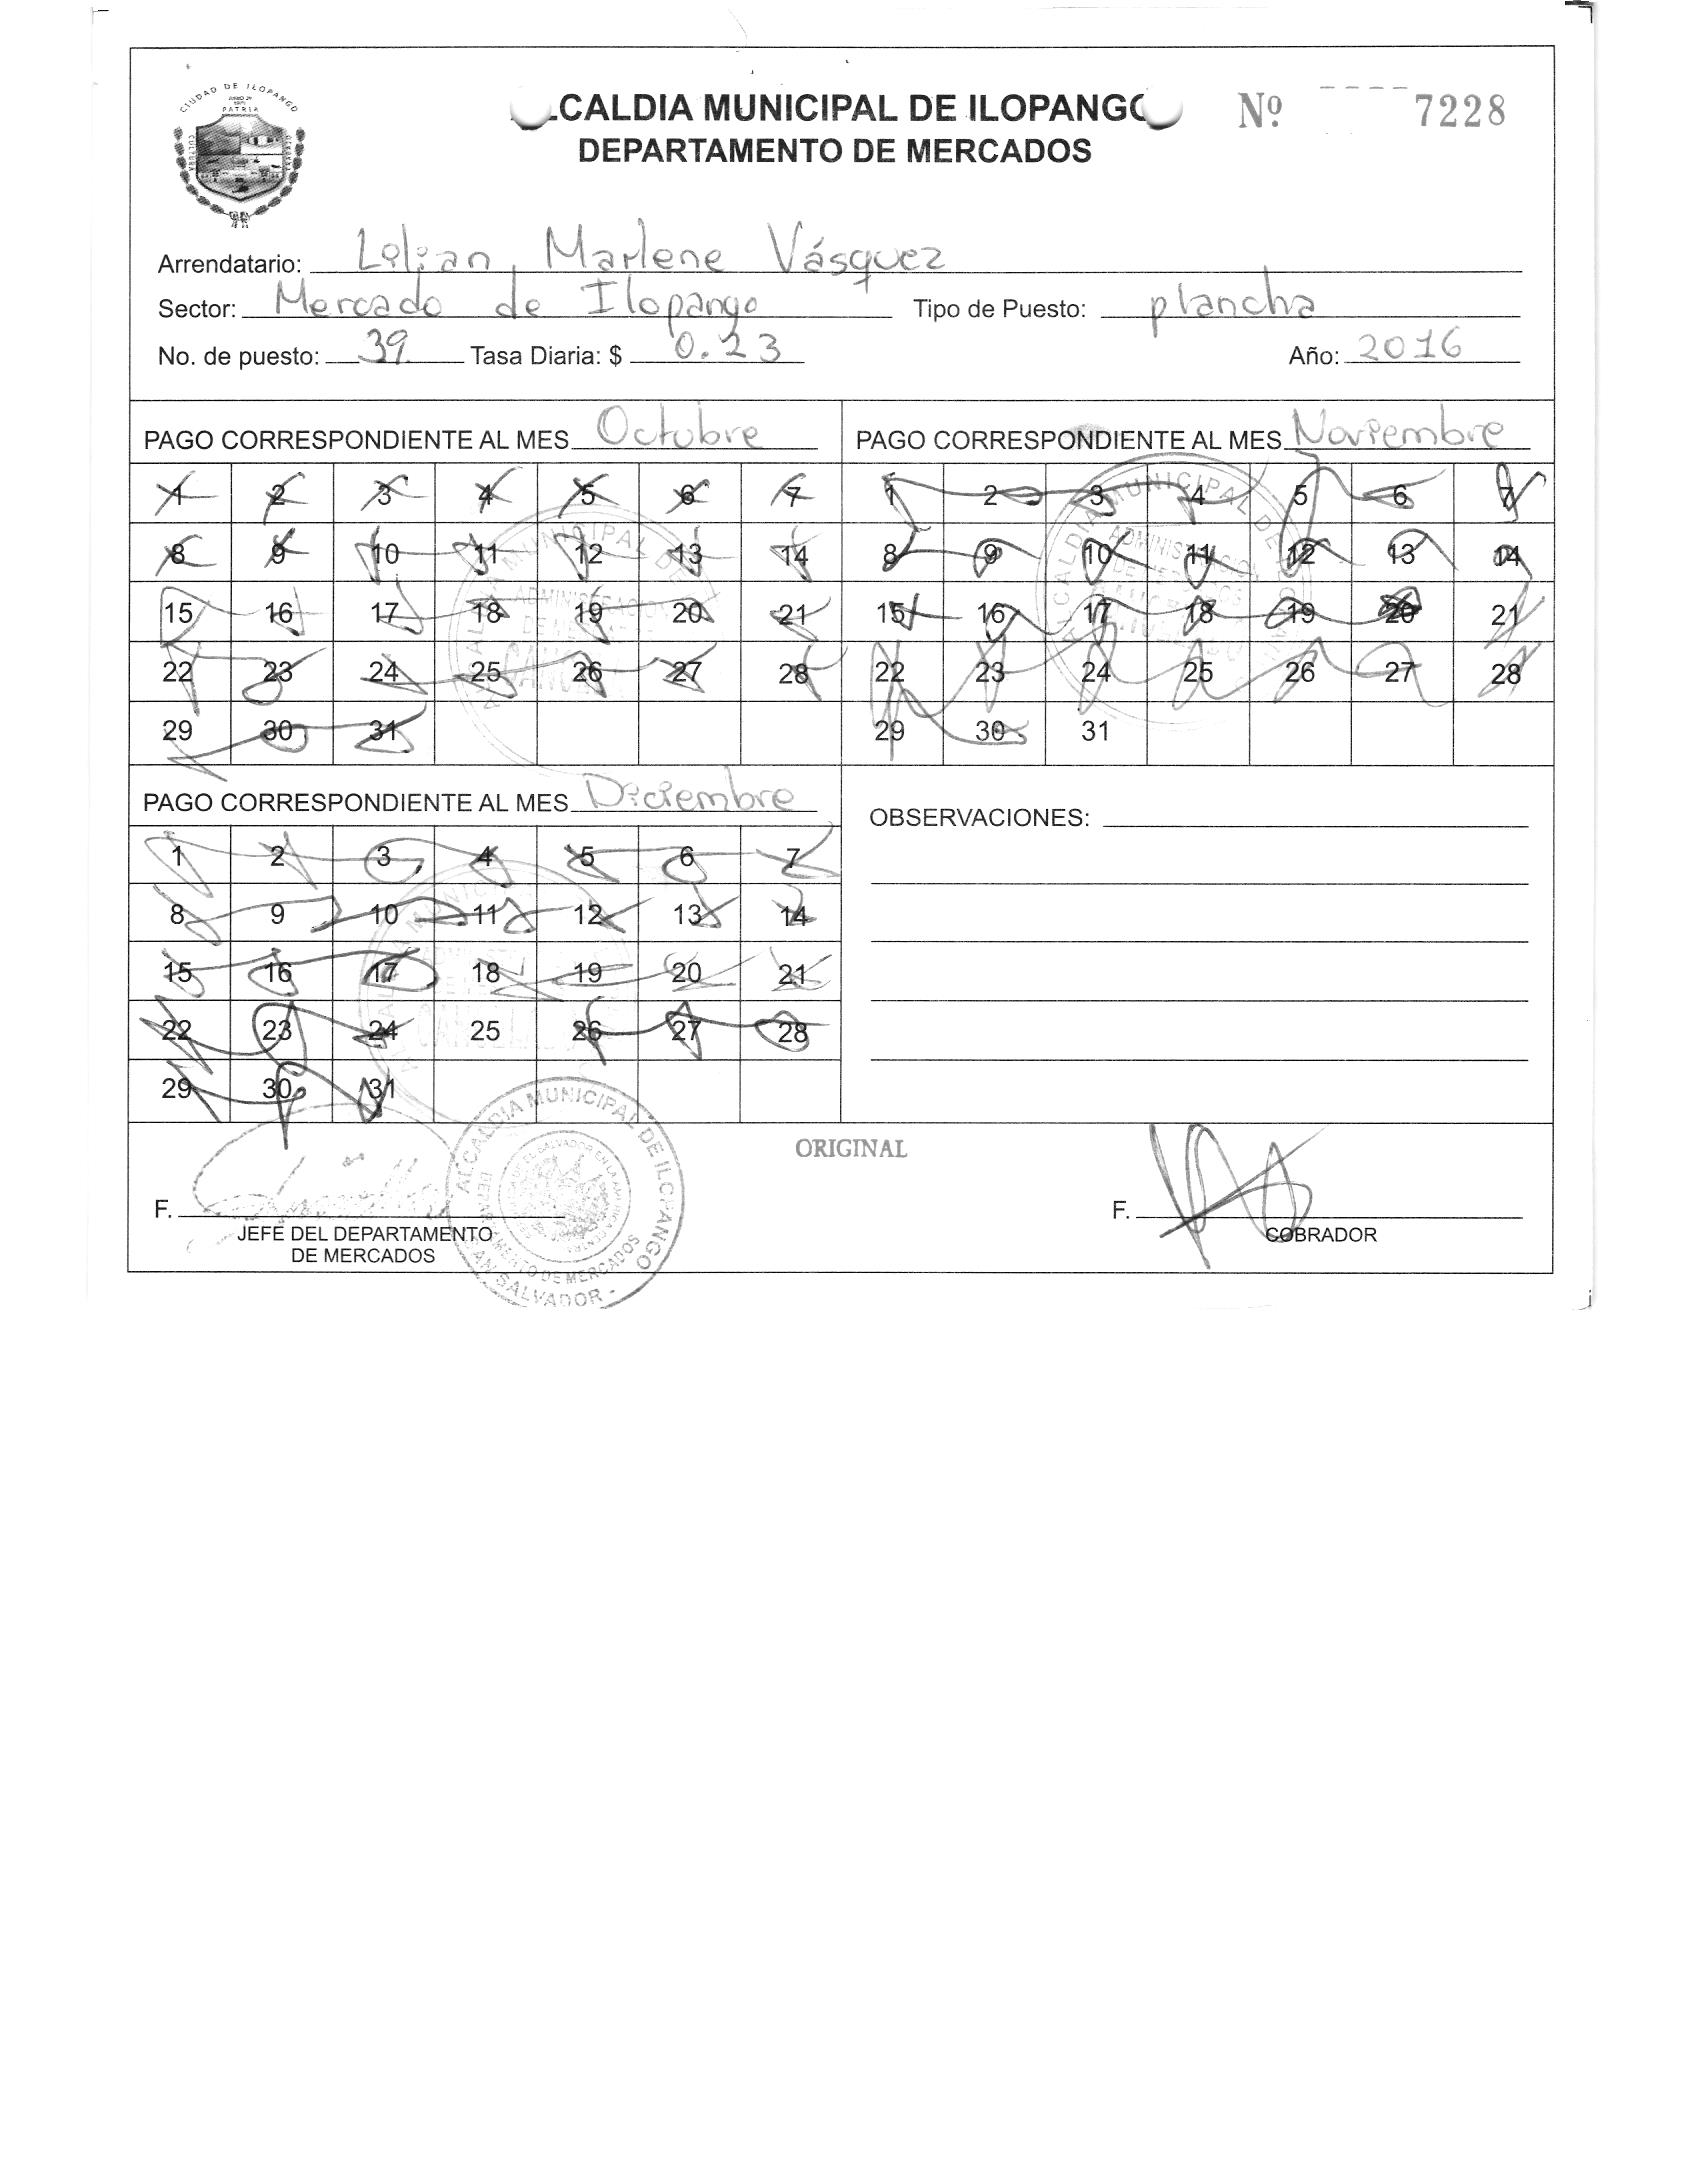 CIUDAD DE ILOPANGO
PATRIA
CULTURA
ALCALDIA MUNICIPAL DE ILOPANGO
Nº 7228
DEPARTAMENTO DE MERCADOS
Arrendatario: Lilian Marlene Vásquez
Sector: Mercado de Ilopango Tipo de Puesto: plancha
No. de puesto: 39 Tasa Diaria: $ 0.23 Año: 2016
PAGO CORRESPONDIENTE AL MES Octubre
1 2 3 4 5 6 7
8 9 10 11 12 13 14
15 16 17 18 19 20 21
22 23 24 25 26 27 28
29 30 31
PAGO CORRESPONDIENTE AL MES Noviembre
1 2 3 4 5 6 7
8 9 10 11 12 13 14
15 16 17 18 19 20 21
22 23 24 25 26 27 28
29 30 31
PAGO CORRESPONDIENTE AL MES Diciembre
1 2 3 4 5 6 7
8 9 10 11 12 13 14
15 16 17 18 19 20 21
22 23 24 25 26 27 28
29 30 31
OBSERVACIONES:
ORIGINAL
F.
JEFE DEL DEPARTAMENTO
DE MERCADOS
ALCALDIA MUNICIPAL DE ILOPANGO
DEPARTAMENTO DE MERCADOS
SAN SALVADOR -
F.
COBRADOR